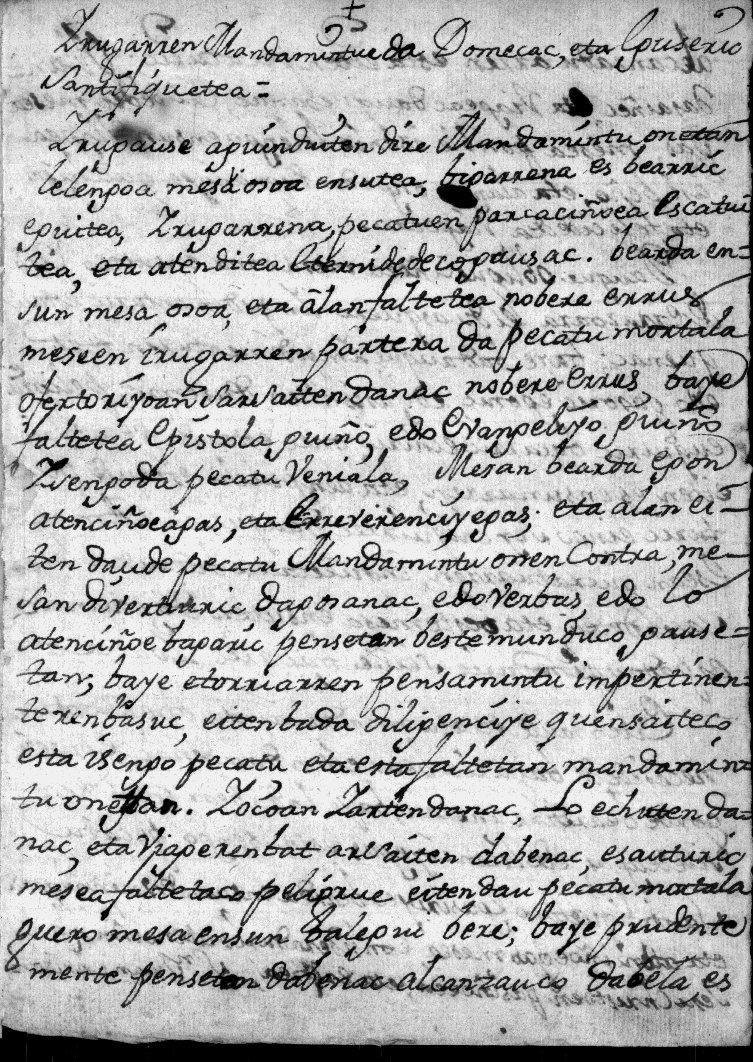 +
Irugarren Mandamintue da Domecac, eta Guserio
Santifiquetea =
Irugause aguinduiten dire Mandamintu onetan
lelengoa mesa osoa ensutea, bigarrena es bearric
eguitea, Irugarrena, pecatuen parcaciñoea Escatui
tea, eta atenditea Eternidedeco gausac. bearda en=
sun mesa osoa, eta alan faltetea nobere errus
meseen irugarren partera da pecatu mortala
ofertoriyoan sarsaiten danac nobere Errus baye
faltetea Epistola guiño, edo Evangeliyo guiño
Isengoda pecatu Veniala, Mesan bearda egon
atenciñoeagas, eta Erreverenciyegas; eta alan ei=
ten daude pecatu Mandamintu onen Contra, me=
san diverturic dagosanac, edo Verbas, edo lo
atenciñoe bagaric pensetan beste munduco gause=
tan; baye etorriarren pensamintu impertinen=
terenbasuc, eiten bada diligenciye quensaiteco
esta isengo pecatu eta esta faltetan mandamin=
tu onetan. Jocoan Jarten danac, Lo echuten da=
nac, eta Viagerenbat arsaiten dabenac, esauturic
mesea faltetaco peligrue eiten dau pecatu mortala
guero mesa ensun balegui bere; baye prudente
mente pensetan dabenac alcanzauco dabela es